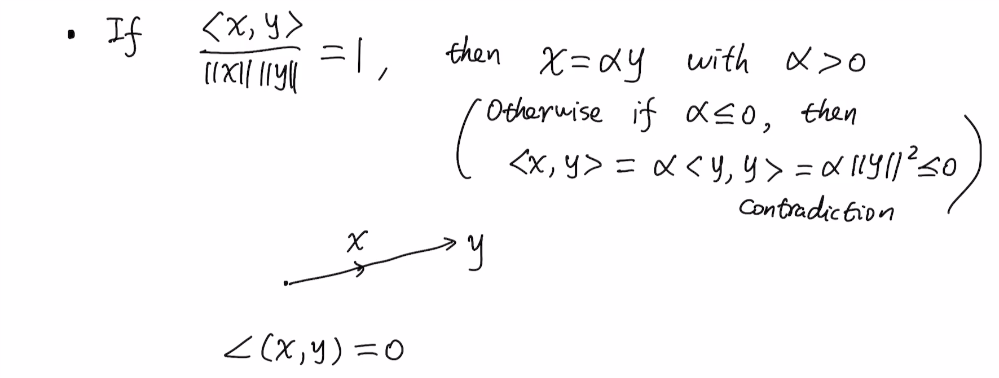 • If <x, y> / ||x|| ||y|| = 1, then x = αy with α > 0
(Otherwise if α ≤ 0, then
<x, y> = α <y, y> = α ||y||² ≤ 0)
contradiction
x
y
∠(x, y) = 0